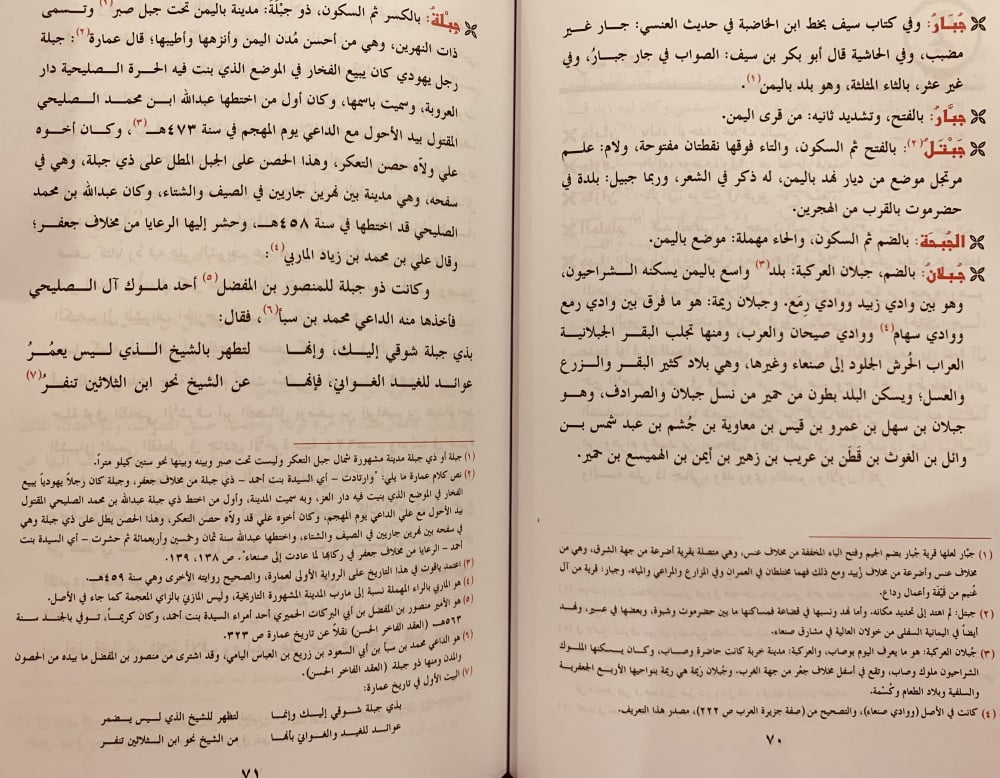 جُبَارُ: وفي كتاب سيف بخط ابن الخاضبة في حديث العنسي: جار غير
مضبب، وفي الحاشية قال أبو بكر بن سيف: الصواب في جار جبارُ، وفي
غير عثر، بالثاء المثلثة، وهو بلد باليمن(١).
جبَّارُ: بالفتح، وتشديد ثانيه: من قرى اليمن.
جَبْتَلُ(٢): بالفتح ثم السكون، والتاء فوقها نقطتان مفتوحة، ولام: علم
مرتجل موضع من ديار نهد باليمن، له ذكر في الشعر، وربما جبيل: بلدة في
حضرموت بالقرب من الهجرين.
الجُبحَة: بالضم ثم السكون، والحاء مهملة: موضع باليمن.
جُبلانُ: بالضم، جبلان العركبة: بلد(٣) واسع باليمن يسكنه الشراحيون،
وهو بين وادي زبيد ووادي رِمَع. وجبلان ريمة: هو ما فرق بين وادي رمع
ووادي سهام(٤) ووادي صيحان والعرب، ومنها تجلب البقر الجبلانية
العراب الحُرش الجلود إلى صنعاء وغيرها، وهي بلاد كثير البقر والزرع
والعسل؛ ويسكن البلد بطون من حمير من نسل جبلان والصرادف، وهو
جبلان بن سهل بن عمرو بن قيس بن معاوية بن جُشم بن عبد شمس بن
وائل بن الغوث بن قَطَن بن عريب بن زهير بن أيمن بن الهميسع بن حمير.
(١) جبَّار لعلها قرية جُبار بضم الجيم وفتح الباء المخففة من مخلاف عنس، وهي متصلة بقرية أضرعة من جهة الشرق، وهي من
مخلاف عنس وأضرعة من مخلاف زُبيد ومع ذلك فهما مختلطان في العمران وفي المزارع والمراعي والمياه. وجبار: قرية من آل
غُنيم من قَيْفَة وأعمال رداع.
(٢) جبتل: لم اهتد إلى تحديد مكانه. وأما نهد ونسبها في قضاعة فمساكنها ما بين حضرموت وشبوة، وبعضها في عسير، ونهد
أيضاً في اليمانية السفلى من خولان العالية في مشارق صنعاء.
(٣) جُبلان العركبة: هو ما يعرف اليوم بوصاب، والعركبة: مدينة خربة كانت حاضرة وصاب، وكان يسكنها الملوك
الشراحيون ملوك وصاب، وتقع في أسفل مخلاف جعُر من جهة الغرب. وجُبلان رَيمة هي ريمة بنواحيها الأربع الجعفرية
والسلفية وبلاد الطعام وكُسْمة.
(٤) كانت في الأصل (ووادي صنعاء)، والتصحيح من (صفة جزيرة العرب ص ٢٢٢)، مصدر هذا التعريف.
٧٠
جبْلةُ: بالكسر ثم السكون، ذو جبْلَةَ: مدينة باليمن تحت جبل صبر(١) وتسمى
ذات النهرين، وهي من أحسن مُدن اليمن وأنزهها وأطيبها؛ قال عمارة(٢): جبلة
رجل يهودي كان يبيع الفخار في الموضع الذي بنت فيه الحرة الصليحية دار
العروبة، وسميت باسمها، وكان أول من اختطها عبدالله ابن محمد الصليحي
المقتول بيد الأحول مع الداعي يوم المهجم في سنة ٤٧٣هـ(٣)، وكان أخوه
علي ولاّه حصن التعكر، وهذا الحصن على الجبل المطل على ذي جبلة، وهي في
سفحه، وهي مدينة بين نهرين جاريين في الصيف والشتاء، وكان عبدالله بن محمد
الصليحي قد اختطها في سنة ٤٥٨هـ، وحشر إليها الرعايا من مخلاف جعفر؛
وقال علي بن محمد بن زياد الماربي(٤):
وكانت ذو جبلة للمنصور بن المفضل(٥) أحد ملوك آل الصليحي
فأخذها منه الداعي محمد بن سبأ(٦)، فقال:
بذي جبلة شوقي إليك، وإنها لتظهر بالشيخ الذي ليس يعمُرُ
عوائد للغيد الغواني، فإنها عن الشيخ نحو ابن الثلاثين تنفرُ(٧)
(١) جبلة أو ذي جبلة مدينة مشهورة شمال جبل التعكر وليست تحت صبر وبينه وبينها نحو ستين كيلو متراً.
(٢) نص كلام عمارة ما يلي: "وارتادت - أي السيدة بنت أحمد - ذي جبلة من مخلاف جعفر، وجبلة كان رجلاً يهودياً يبيع
الفخار في الموضع الذي بنيت فيه دار العز، وبه سميت المدينة، وأول من اختط ذي جبلة عبدالله بن محمد الصليحي المقتول
بيد الأحول مع علي الداعي يوم المهجم، وكان أخوه علي قد ولاّه حصن التعكر، وهذا الحصن يطل على ذي جبلة وهي
في سفحه بين نهرين جاريين في الصيف والشتاء، واختطها عبدالله سنة ثمان وخمسين وأربعمائة ثم حشرت - أي السيدة بنت
أحمد - الرعايا من مخلاف جعفر في ركابها لما عادت إلى صنعاء". ص ١٣٨، ١٣٩.
(٣) اعتمد ياقوت في هذا التاريخ على الرواية الأولى لعمارة، والصحيح روايته الأخرى وهي سنة ٤٥٩هـ.
(٤) هو الماربي بالراء المهملة نسبة إلى مارب المدينة المشهورة التاريخية، وليس المازني بالزاي المعجمة كما جاء في الأصل.
(٥) هو الأمير منصور بن المفضل بن أبي البركات الحميري أحد أمراء السيدة بنت أحمد، وكان كريماً، توفي بالجند سنة
٥٢٣هـ (العقد الفاخر الحسن) نقلاً عن تاريخ عمارة ص ٣٢٣.
(٦) هو الداعي محمد بن سبأ بن أبي السعود بن زريع بن العباس اليامي، وقد اشترى من منصور بن المفضل ما بيده من الحصون
والمدن ومنها ذو جبلة (العقد الفاخر الحسن).
(٧) البيت الأول في تاريخ عمارة:
بذي جبلة شوقي إليك وإنما لتظهر للشيخ الذي ليس يضمر
عوائد للغيد والغواني بأنها من الشيخ نحو ابن الثلاثين تنفر
٧١